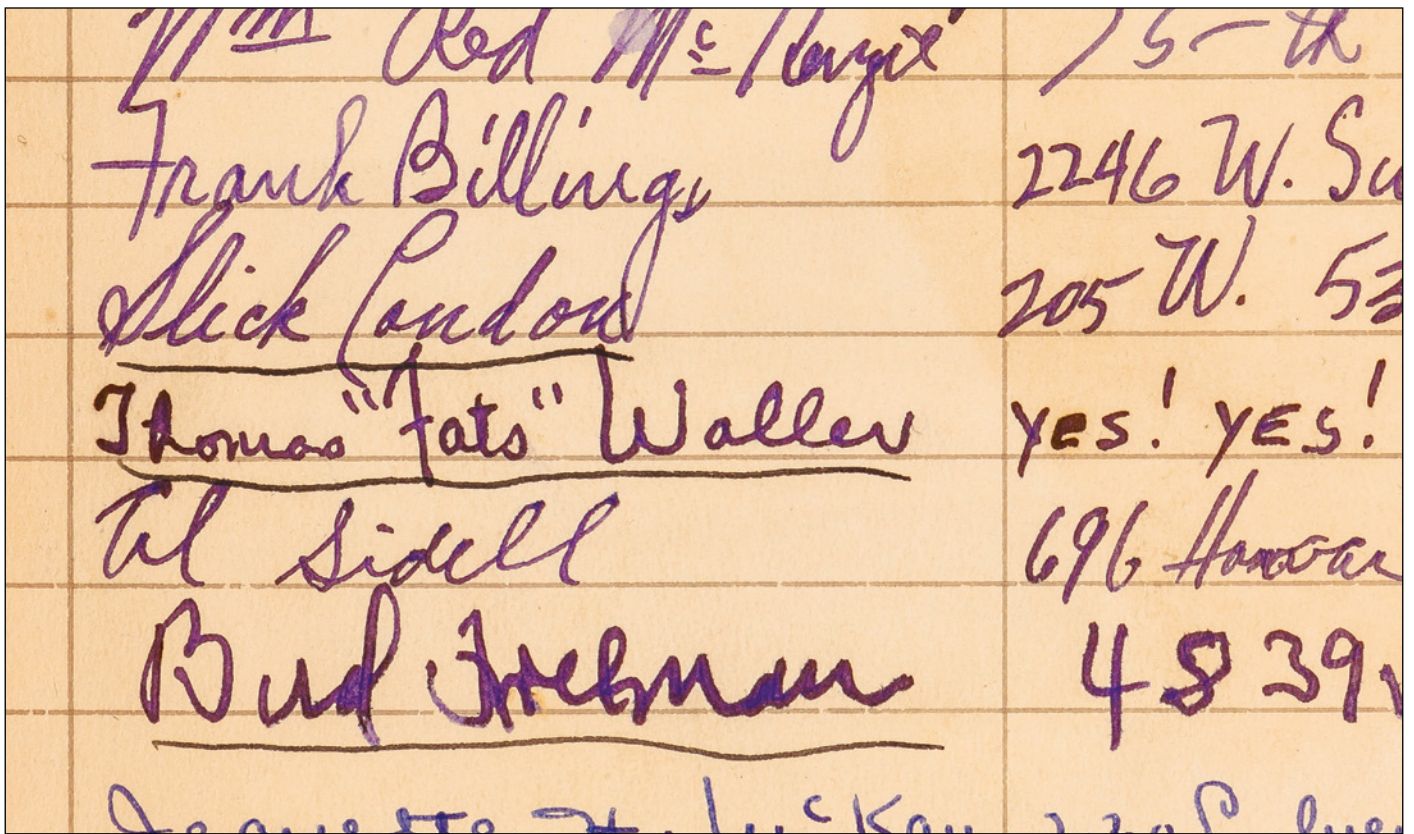 Wm Red McKenzie 75-th
Frank Billings 2246 W. Su
Slick Condon 205 W. 53
Thomas "Fats" Waller yes! yes!
Al Sidell 696
Bud Freeman 4839
Jeanette H. McKay